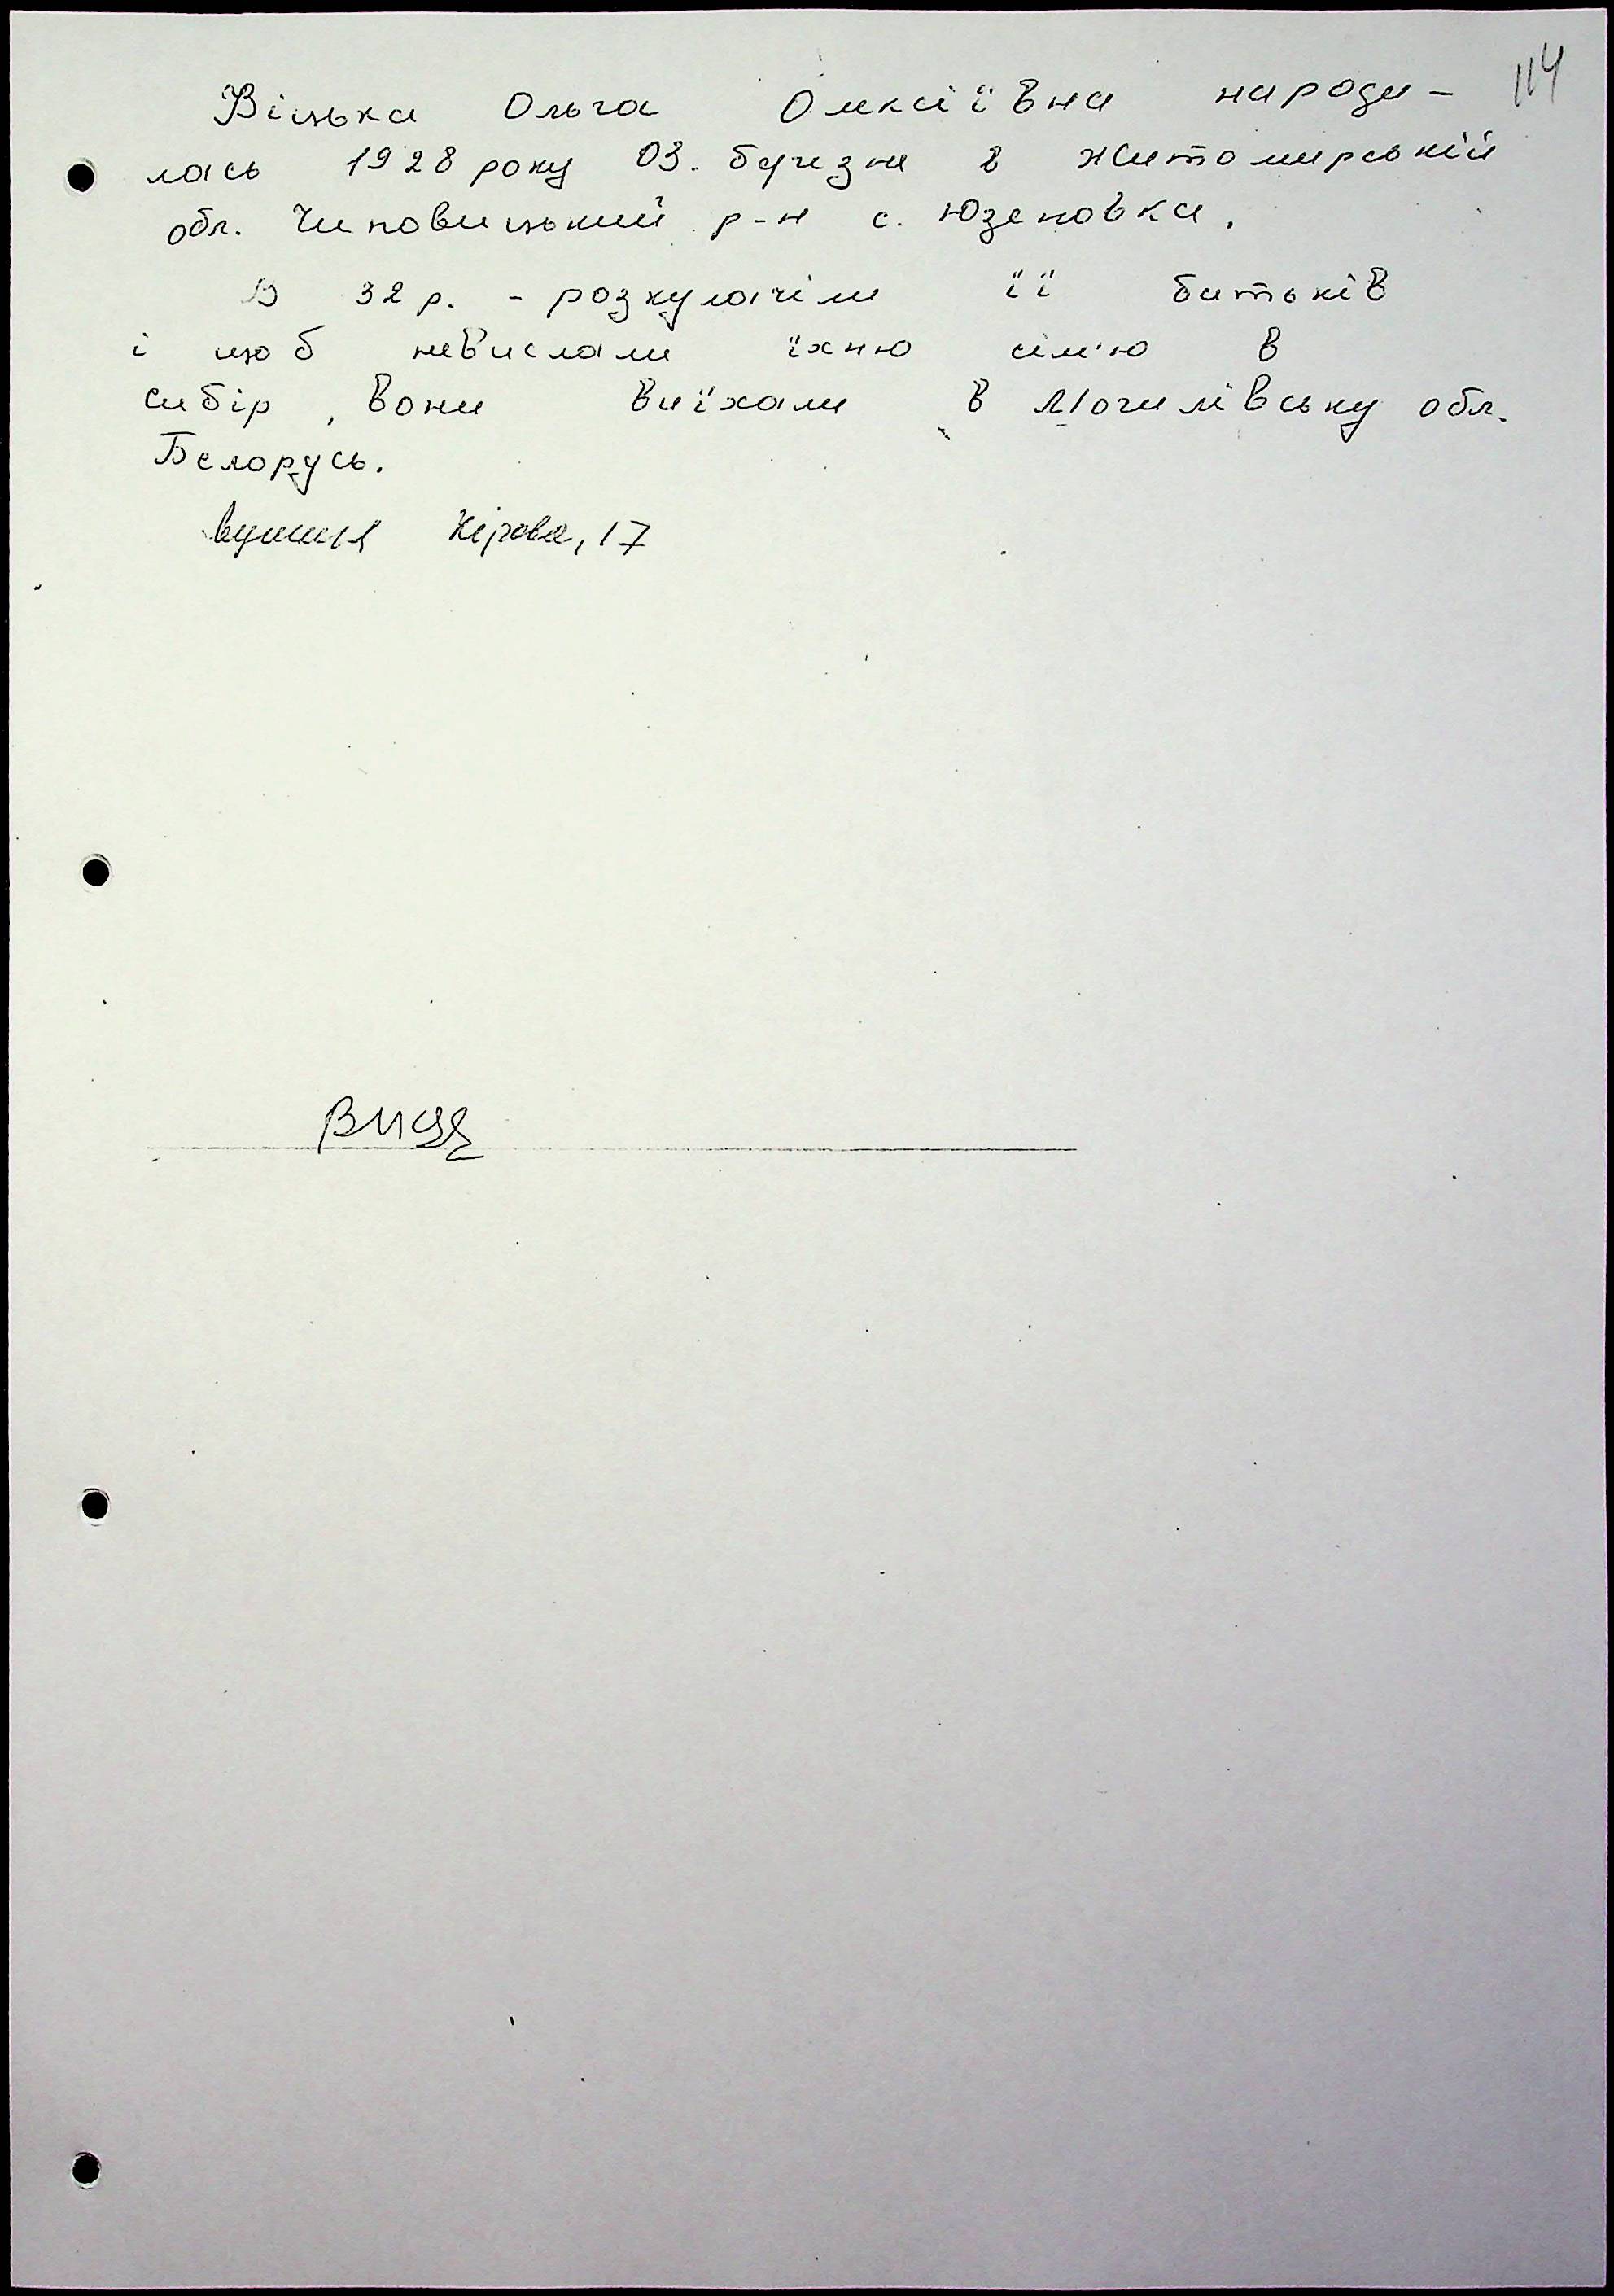 114
Віцька Ольга Олексіївна народи-
лась 1928 року 03. березня в Житомирській
обл. Чиповицький р-н с. Юзеновка.
В 32 р. - розкулачіли її батьків
і щоб невислали їхню сім'ю в
сибір, вони виїхали в Могилівську обл.
Белорусь.
вулиця Кірова, 17